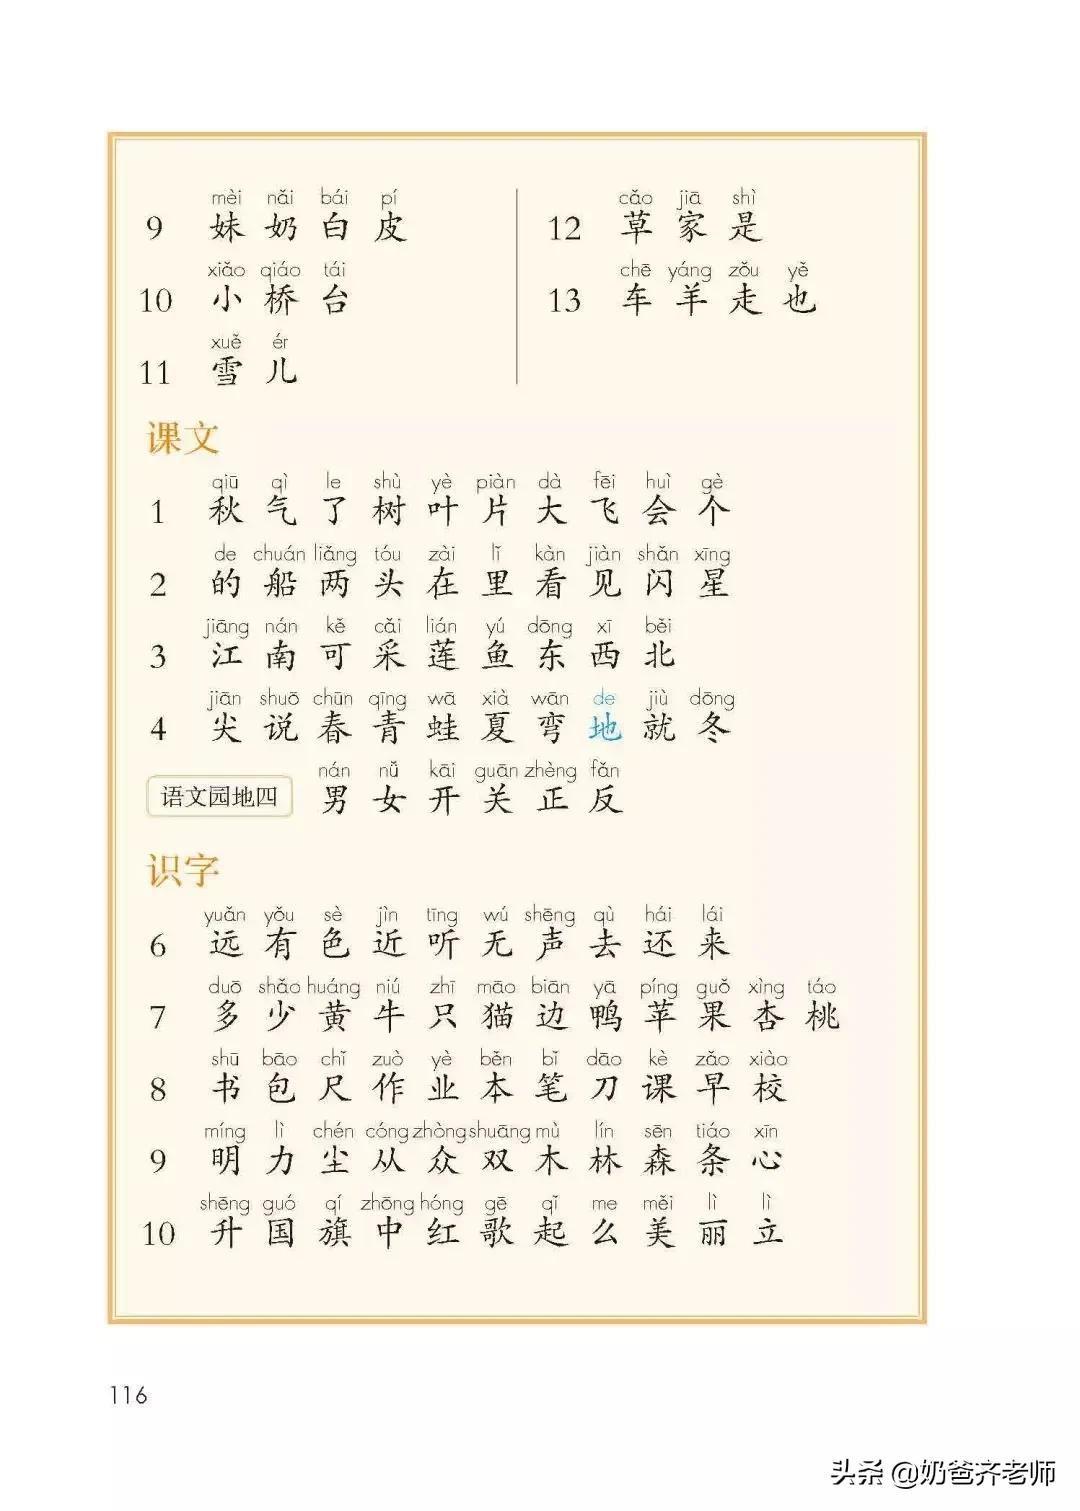 mèi nǎi bái pí
9 妹 奶 白 皮
xiǎo qiáo tái
10 小 桥 台
xuě ér
11 雪 儿
cǎo jiā shì
12 草 家 是
chē yáng zǒu yě
13 车 羊 走 也
课文
qiū qì le shù yè piàn dà fēi huì gè
1 秋 气 了 树 叶 片 大 飞 会 个
de chuán liǎng tóu zài lǐ kàn jiàn shǎn xīng
2 的 船 两 头 在 里 看 见 闪 星
jiāng nán kě cǎi lián yú dōng xī běi
3 江 南 可 采 莲 鱼 东 西 北
jiān shuō chūn qīng wā xià wān de jiù dōng
4 尖 说 春 青 蛙 夏 弯 地 就 冬
nán nǚ kāi guān zhèng fǎn
语文园地四 男 女 开 关 正 反
识字
yuǎn yǒu sè jìn tīng wú shēng qù hái lái
6 远 有 色 近 听 无 声 去 还 来
duō shǎo huáng niú zhī māo biān yā píng guǒ xìng táo
7 多 少 黄 牛 只 猫 边 鸭 苹 果 杏 桃
shū bāo chǐ zuò yè běn bǐ dāo kè zǎo xiào
8 书 包 尺 作 业 本 笔 刀 课 早 校
míng lì chén cóng zhòng shuāng mù lín sēn tiáo xīn
9 明 力 尘 从 众 双 木 林 森 条 心
shēng guó qí zhōng hóng gē qǐ me měi lì lì
10 升 国 旗 中 红 歌 起 么 美 丽 立
116
头条 @奶爸齐老师